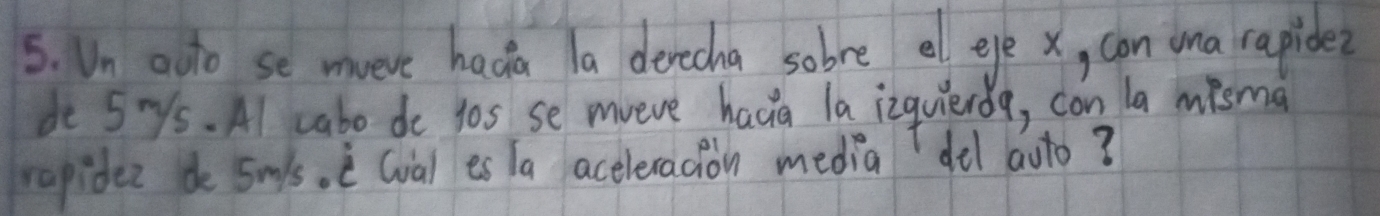 5. Un auto se mueve hacia la derecha sobre el eje x, con una rapidez
de 5 m/s. Al cabo de 10s se mueve hacia la izquierda, con la misma
rapidez de 5m/s. ¿ Cuál es la aceleración media del auto ?